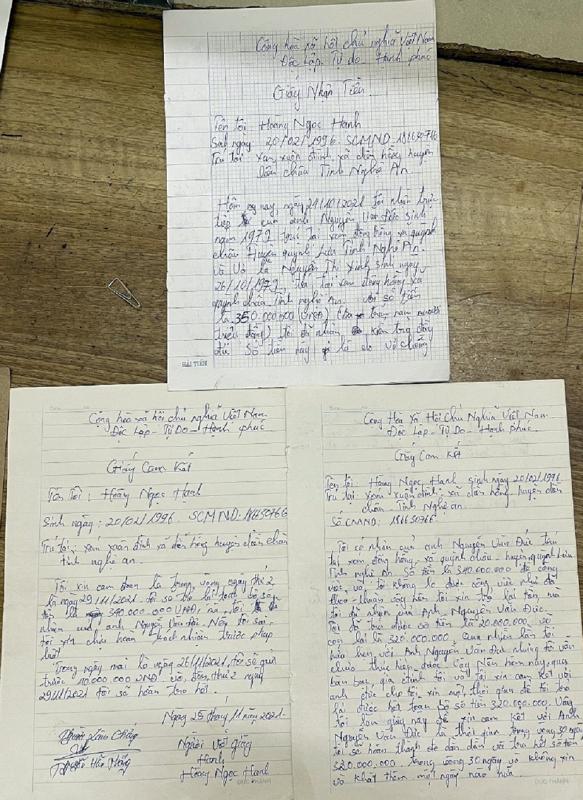 Cộng hòa xã hội chủ nghĩa Việt Nam
Độc Lập Tự do Hạnh phúc
Giấy Nhận Tiền
Tên tôi Hoàng Ngọc Hạnh
Sinh ngày 20/02/1996 SCMND
Trú tại xóm xuân đình xã diễn hồng huyện
diễn châu Tỉnh Nghệ An
Hôm nay, ngày 24/10/2021 tôi nhận trực
tiếp của anh Nguyễn Văn Đức sinh
năm 1972 trú tại xóm đồng hồng xã quỳnh
châu Huyện quỳnh Lưu Tỉnh Nghệ An.
và vợ là Nguyễn Thị sinh ngày
26/10/1977, trú tại xóm đồng hồng xã
quỳnh châu Tỉnh nghệ An với số tiền
là 350.000.000 (VND) (ba trăm năm mươi
triệu đồng) tôi đã nhận
đủ số tiền này là do vợ chồng
HẢI TIẾN
Cộng hòa xã hội chủ nghĩa Việt Nam
Độc Lập - Tự Do - Hạnh phúc
Giấy Cam Kết
Tên Tôi: Hoàng Ngọc Hạnh
Sinh ngày: 20/02/1996. SCMND:
Trú tại: xóm xuân đình xã diễn hồng huyện diễn châu
tỉnh nghệ an.
Tôi xin cam đoan là trong vòng ngày thứ 2
là ngày 29/11/2021, tôi sẽ trả lại toàn bộ số
tiền là 340.000.000 VND, mà tôi
nhận của anh Nguyễn Văn Đức. Nếu tôi sai,
tôi xin chịu hoàn toàn trách nhiệm trước pháp
luật
Trong ngày mai là ngày 26/11/2021, tôi sẽ gửi
trước 10.000.000 VND và, đến thứ 2 ngày
29/11/2021 tôi sẽ hoàn trả hết.
Ngày 25 tháng 11 năm 2021.
Người viết giấy
Hạnh
Hoàng Ngọc Hạnh
Cộng Hòa Xã Hội Chủ Nghĩa Việt Nam
Độc Lập - Tự Do - Hạnh Phúc
Giấy Cam Kết
Tên tôi: Hoàng Ngọc Hạnh sinh ngày 20/02/1996
Trú tại xóm xuân đình xã diễn hồng huyện diễn
châu Tỉnh Nghệ an.
Số CMND:
Tôi có nhận của anh Nguyễn Văn Đức trú
tại xóm đồng hồng xã quỳnh châu huyện quỳnh Lưu
Tỉnh Nghệ An số tiền là 340.000.000 để
việc, và tôi không lo được công việc như đã
theo thuận vậy nên tôi xin trả lại tiền mà
tôi đã nhận của Anh Nguyễn Văn Đức.
Tôi đã trả được số tiền là 20.000.000 và
còn lại là 320.000.000. Qua nhiều lần tôi
hứa hẹn với Anh Nguyễn Văn Đức nhưng tôi vẫn
chưa thực hiện được. Vậy Nên hôm nay, qua
gia đình tôi và tôi xin cam kết với
anh Đức cho tôi xin một thời gian để tôi trả
lại được hết toàn bộ số tiền 320.000.000. Vậy
tôi làm giấy này để xin cam kết với Anh
Nguyễn Văn Đức là thời gian trong vòng 30 ngày
tôi sẽ hoàn thành trả hết số tiền
320.000.000. trong vòng 30 ngày và không xin
và khất thêm một ngày nào nữa.